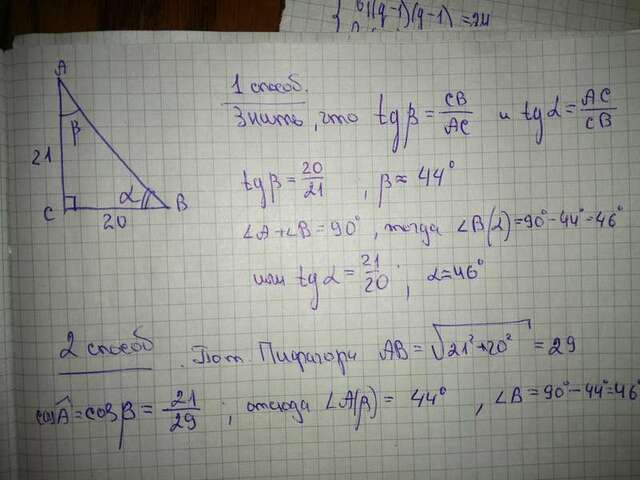 A
β
21
C
20
α
B
1 способ.
Знать, что tg β = CB/AC и tg α = AC/CB
tg β = 20/21, β ≈ 44°
∠A + ∠B = 90°, тогда ∠B(α) = 90° - 44° = 46°
или tg α = 21/20; α ≈ 46°
2 способ.
По т. Пифагора AB = √21² + 20² = 29
cos A = cos β = 21/29; отсюда ∠A(β) = 44°, ∠B = 90° - 44° = 46°